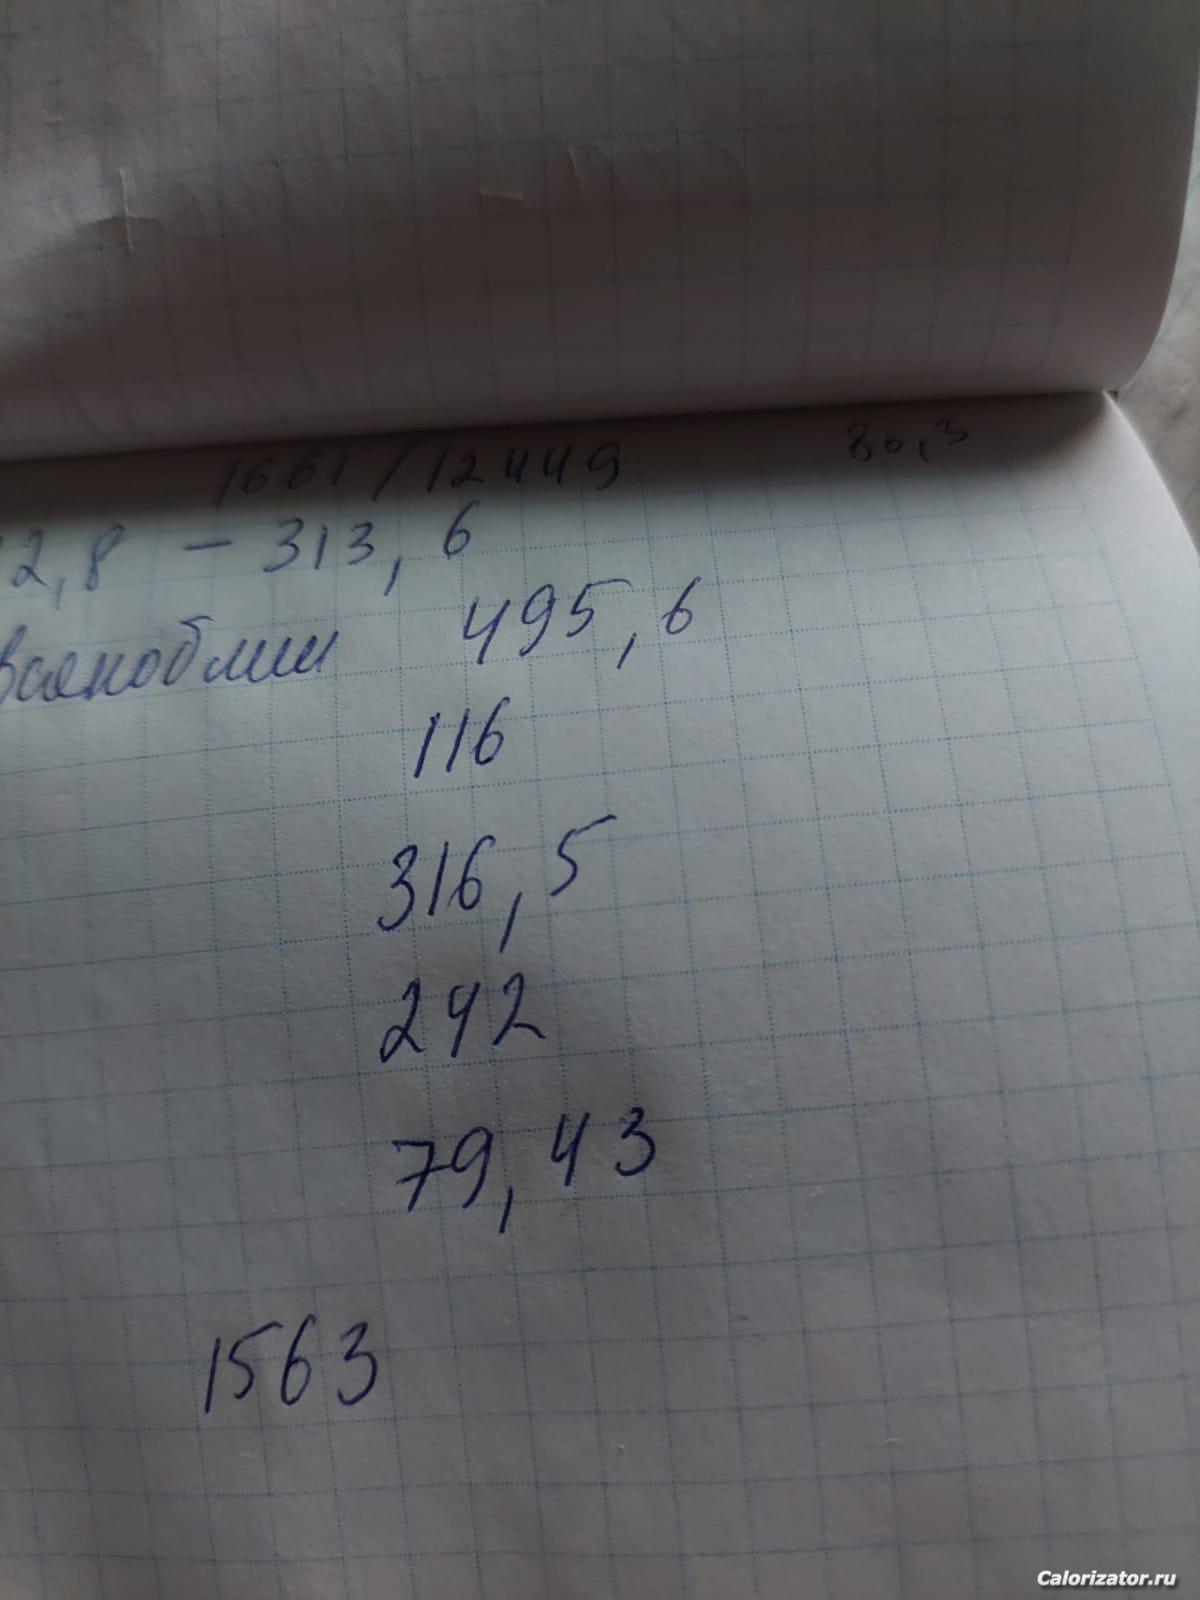 1661/12449 80,3
2,8 - 313,6
495,6
116
316,5
242
79,43
1563
Calorizator.ru